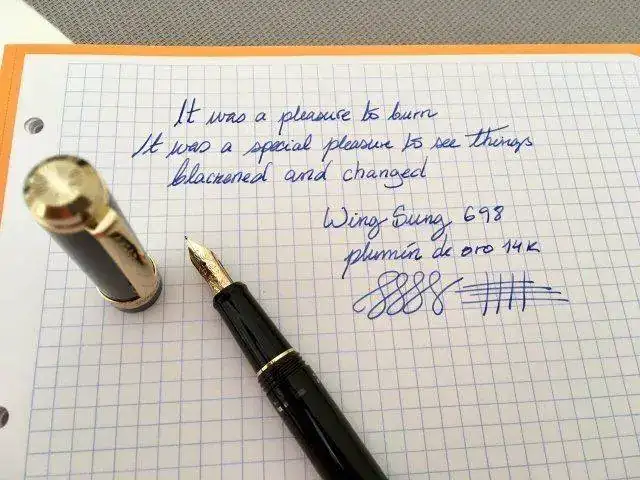 It was a pleasure to burn
It was a special pleasure to see things
blackened and changed
Wing Sung 698
plumín de oro 14K